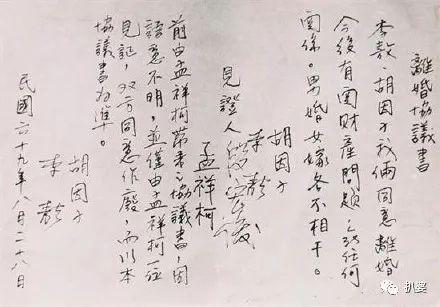 離婚協議書
李敖、胡因子我倆同意離婚
今後有関財產問題,及任何
関係。男婚女嫁各不相干。
胡因子
李敖
見證人
孟祥柯
前由孟祥柯帶來之協議書,因
語意不明,並僅由孟祥柯一位
見証,双方同意作廢,而以本
協議書為準。
胡因子
李敖
民國六十九年八月二十八日
扒婆